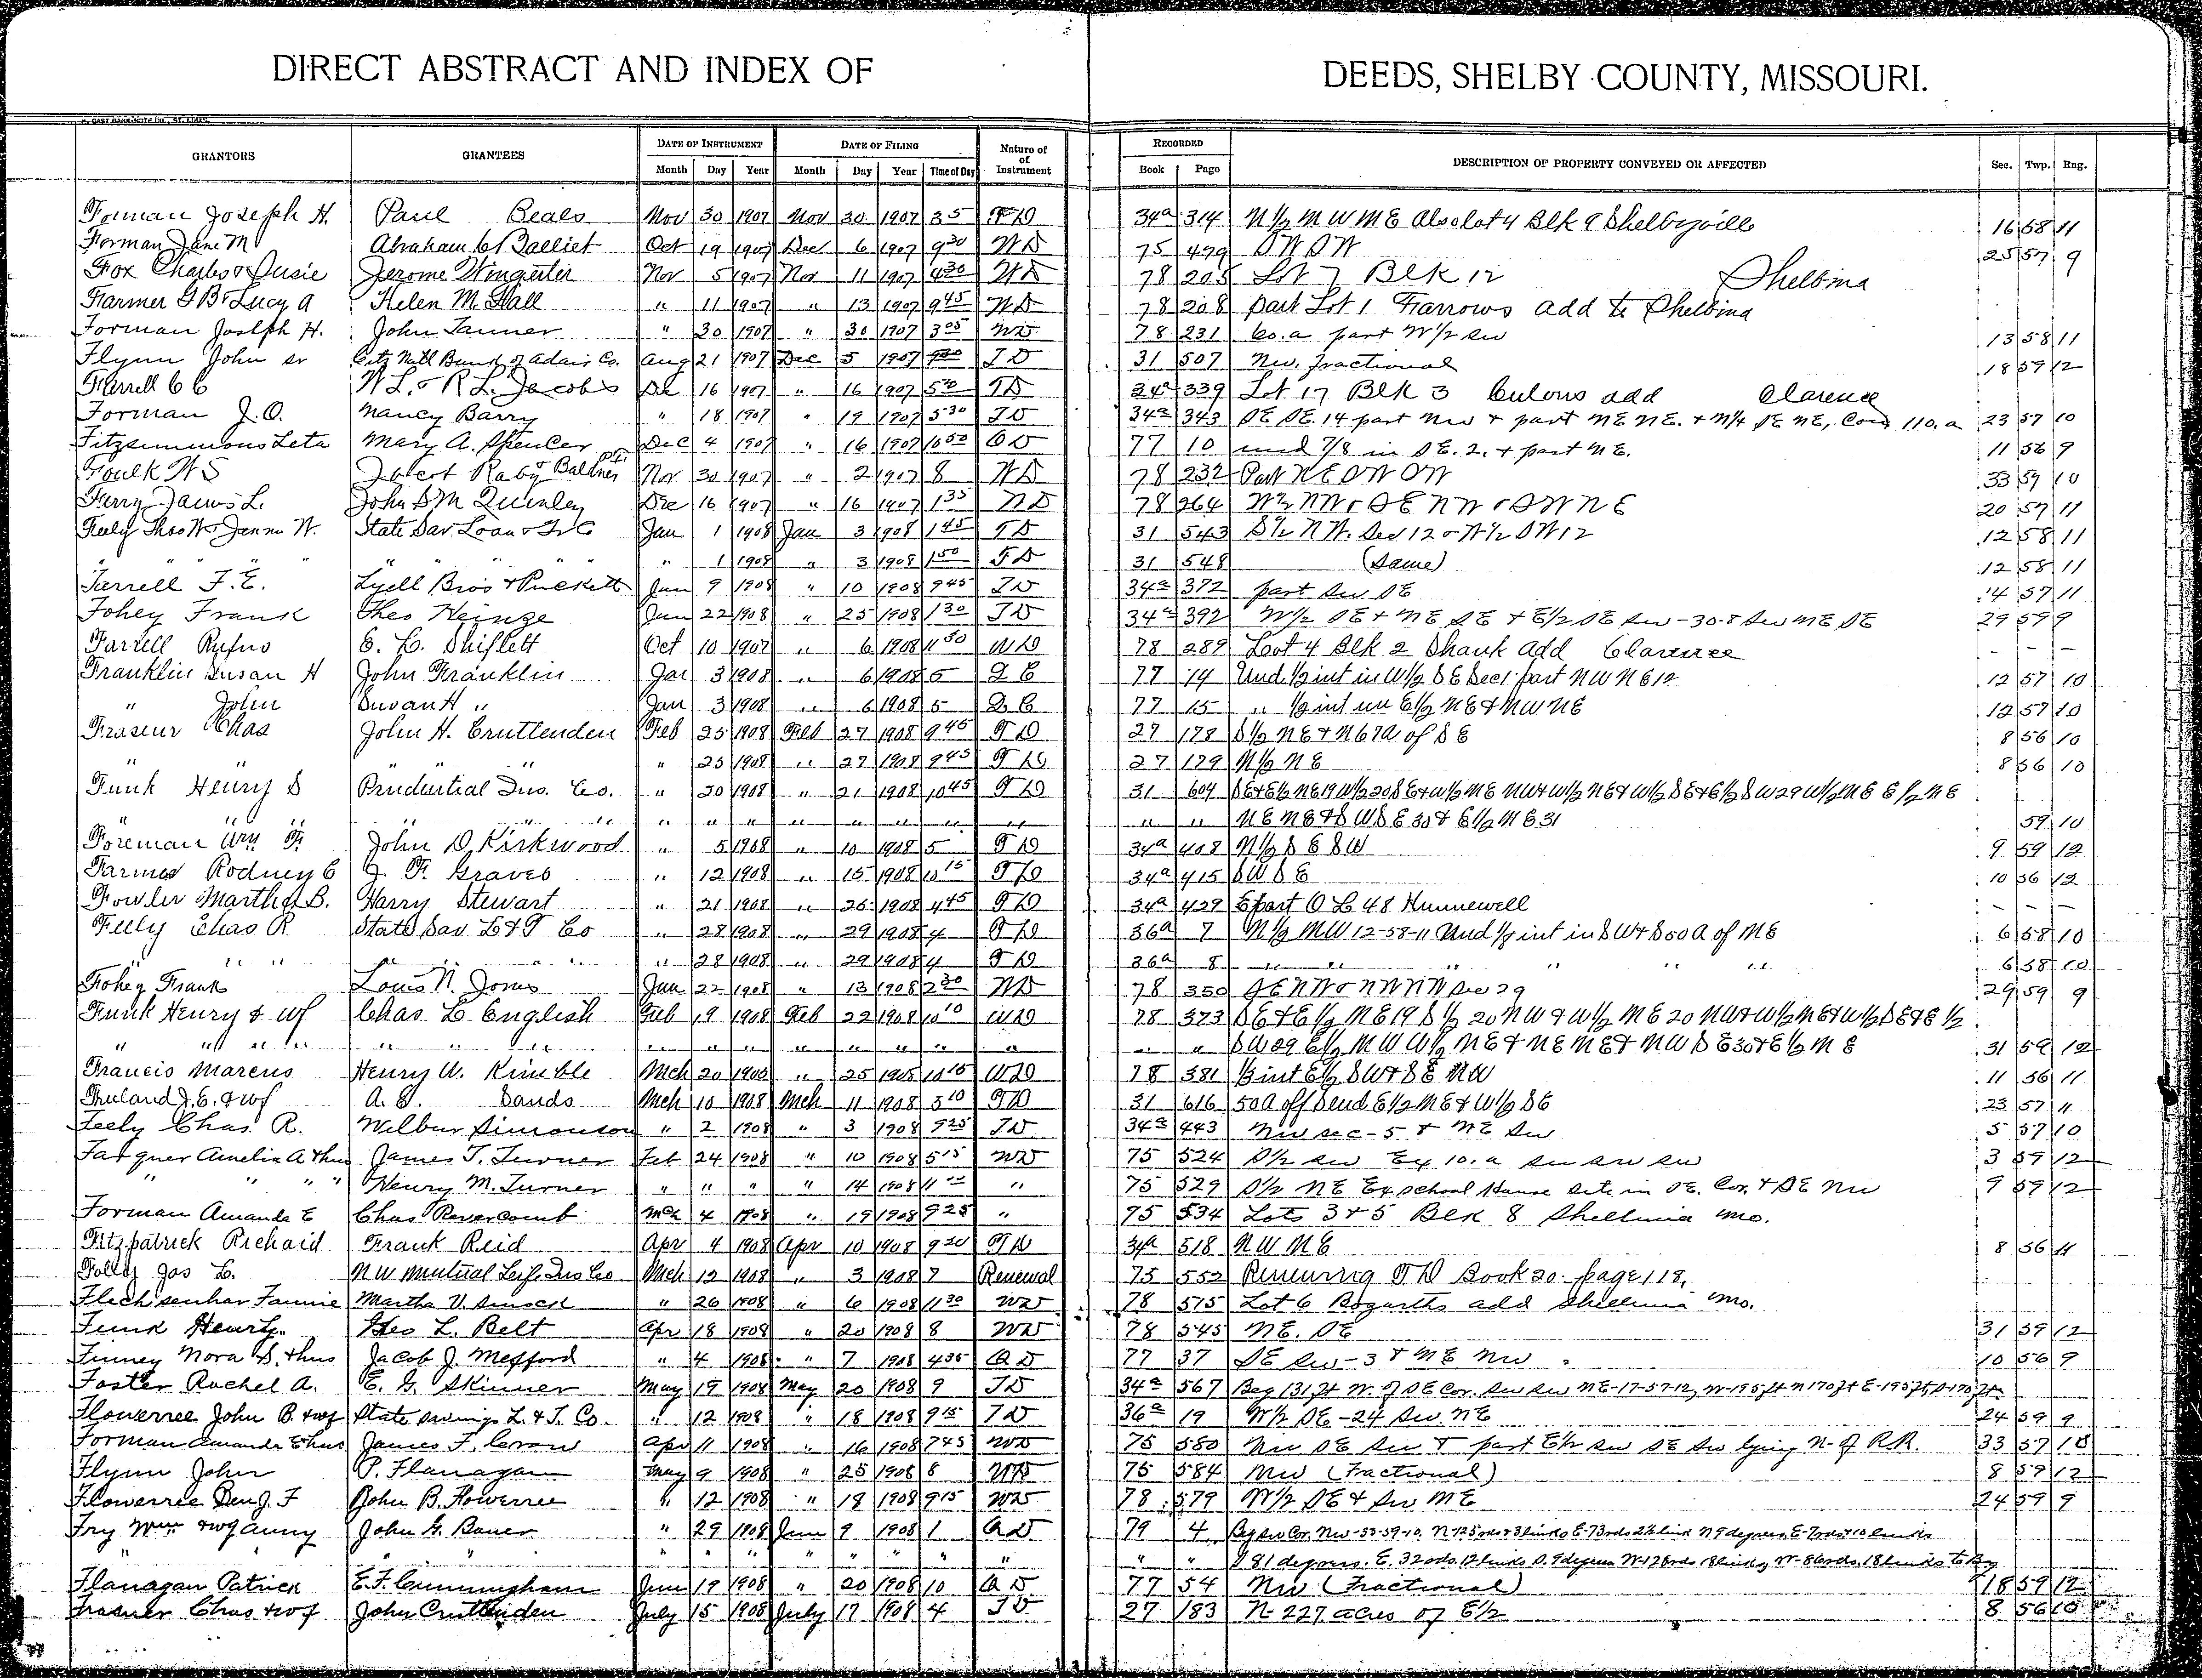 DIRECT ABSTRACT AND INDEX OF DEEDS, SHELBY COUNTY, MISSOURI.
GRANTORS GRANTEES DATE OF INSTRUMENT DATE OF FILING Nature of Instrument RECORDED DESCRIPTION OF PROPERTY CONVEYED OR AFFECTED Sec. Twp. Rng.
Month Day Year Month Day Year Time of Day Book Page
Forman Joseph H. Paul Beals Nov 30 1907 Nov 30 1907 3 5 T D 34a 314 N 1/2 N W N E Also lot 4 Blk 9 Shelbyville 16 58 11
Forman Jane M Abraham C Balliet Oct 19 1907 Dec 6 1907 9 30 W D 75 479 S W S W 25 57 9
Fox Charles & Susie Jerome Wingerter Nov 5 1907 Nov 11 1907 4 30 W D 78 205 Lot 7 Blk 12 Shelbina
Farmer G B & Lucy A Helen M. Hall " 11 1907 " 13 1907 9 45 W D 78 208 part Lot 1 Farrows add to Shelbina
Forman Joseph H. John Tanner " 30 1907 " 30 1907 3 05 W D 78 231 60. a part W 1/2 Sw 13 58 11
Flynn John sr Citz Natl Bank of Adair Co. Aug 21 1907 Dec 5 1907 T D 31 507 Nw. fractional 18 59 12
Farrell C C W L. & R L. Jacobs Dec 16 1907 " 16 1907 5 T D 34a 339 Lot 17 Blk 3 add Clarence
Forman J. O. Nancy Barry " 18 1907 " 19 1907 5 30 T D 34a 343 SE SE. 14 part Nw & part NE NE. & N 1/4 SE NE, Cont 110. a 23 57 10
Fitzsimmons Leta Mary A. Spencer Dec 4 1907 " 16 1907 10 50 Q D 77 10 und 7/8 in SE. 2. & part N E. 11 56 9
Foulk W S Raby & Baldner Nov 30 1907 " 2 1907 8 W D 78 232 Part N E S W S W 33 59 10
Ferry James L. John S M Quinley Dec 16 1907 " 16 1907 1 35 W D 78 264 W 1/2 N W & S E N W & S W N E 20 57 11
Feely Thos W & Jennie W. State Sav. Loan & Tr Co Jan 1 1908 Jan 3 1908 1 45 T D 31 543 S 1/2 N W. Sec 12 & N 1/2 S W 12 12 58 11
" " " " " " 1 1908 " 3 1908 1 50 T D 31 548 (Same) 12 58 11
Farrell F. E. Lyell Bros & Puckett Jan 9 1908 " 10 1908 9 45 T D 34a 372 part Sw SE 14 57 11
Fohey Frank Theo Heinze Jan 22 1908 " 25 1908 1 30 T D 34a 392 W 1/2 SE & NE SE & E 1/2 SE Sw - 30 - & Sw NE SE 29 59 9
Farrell Rufus E. L. Shiflett Oct 10 1907 " 6 1908 11 30 W D 78 289 Lot 4 Blk 2 Shank Add Clarence - - -
Franklin Susan H John Franklin Jan 3 1908 " 6 1908 5 Q C 77 14 Und. 1/2 int in W 1/2 S E Sec 1 part N W N E 12 12 57 10
" John Susan H " Jan 3 1908 " 6 1908 5 Q C 77 15 " 1/2 int in E 1/2 N E & N W N E 12 57 10
Fraseur Chas John H. Cruttenden Feb 25 1908 Feb 27 1908 9 45 T D 27 178 S 1/2 N E & N 67 A of S E 8 56 10
" " " " " " 25 1908 " 27 1908 9 45 T D 27 179 N 1/2 N E 8 56 10
Funk Henry S Prudential Ins. Co. " 20 1908 " 21 1908 10 45 T D 31 604 S E & E 1/2 N E 19 W 1/2 20 S E & W 1/2 N E N W & W 1/2 N E & W 1/2 S E & E 1/2 S W 29 W 1/2 N E E 1/2 N E
" " " " " " " " " " " " " " " N E N E & S W S E 30 & E 1/2 N E 31 59 10
Foreman Wm F. John D. Kirkwood " 5 1908 " 10 1908 5 T D 34a 408 N 1/2 S E S W 9 59 12
Farmer Rodney C J. F. Graves " 12 1908 " 15 1908 10 15 T D 34a 415 S W S E 10 56 12
Fowler Martha B. Harry Stewart " 21 1908 " 26 1908 4 45 T D 34a 429 E part O L 48 Hunnewell - - -
Feely Chas R State Sav L & T Co " 28 1908 " 29 1908 4 T D 36a 7 N 1/2 N W 12-58-11 Und 1/2 int in S W & S 50 A of N E 6 58 10
" " " " " " " 28 1908 " 29 1908 4 T D 36a 8 " " " " " " 6 58 10
Fohey Frank Louis N. Jones Jan 22 1908 " 13 1908 2 30 W D 78 350 S E N W & N W N W Sec 29 29 59 9
Funk Henry & wf Chas. L English Feb 19 1908 Feb 22 1908 10 10 W D 78 373 S E & E 1/2 N E 19 S 1/2 20 N W & W 1/2 N E 20 N W & W 1/2 N E & W 1/2 S E & E 1/2
" " " " " " " " " " " " " " " " S W 29 E 1/2 N W W 1/2 N E & N E N E & N W S E 30 & E 1/2 N E 31 59 12
Francis Marcus Henry W. Kimble Mch 20 1908 " 25 1908 10 15 W D 78 381 1/3 int E 1/2 S W & S E N W 11 56 11
J. E. & wf A. J. Sands Mch 10 1908 Mch 11 1908 5 10 T D 31 616 50 A off S end E 1/2 N E & W 1/2 S E 23 57 11
Feely Chas. R. Wilbur Simonson " 2 1908 " 3 1908 9 25 T D 34a 443 Nw sec - 5 & NE Sw 5 57 10
Farquer Amelia A & hus James T. Turner Feb 24 1908 " 10 1908 5 15 W D 75 524 S 1/2 Sw Ex 10. a Sw Sw Sw 3 59 12
" " " " Henry M. Turner " " " " 14 1908 11 " 75 529 S 1/2 NE Ex school House Site in SE. Cor. & SE Nw 9 59 12
Forman Amanda E Chas Ravercomb Mch 4 1908 " 19 1908 9 25 " 75 534 Lots 3 & 5 Blk 8 Shelbina Mo.
Fitzpatrick Richard Frank Reid Apr 4 1908 Apr 10 1908 9 20 T D 34a 518 N W N E 8 56 11
Jas L. N W Mutual Life Ins Co Mch 12 1908 " 3 1908 7 Renewal 75 552 Renewing T D Book 20 - page 118.
Flechsenhar Fannie Martha V. Smock " 26 1908 " 6 1908 11 30 W D 78 515 Lot 6 Bogarths add Shelbina Mo.
Funk Henry Geo L. Belt Apr 18 1908 " 20 1908 8 W D 78 545 N E. S E 31 59 12
Finney Nora S. & hus Jacob J. Mefford " 4 1908 " 7 1908 4 35 Q D 77 37 SE Sw - 3 & NE Nw 10 56 9
Foster Rachel A. E. G. Skinner May 19 1908 May 20 1908 9 T D 34a 567 Beg 131 ft W. of SE Cor. Sw Sw NE-17-57-12, W-195 ft N 170 ft E-195 ft, S-170 ft.
Flowerree John B. & wf State Savings L. & T. Co. " 12 1908 " 18 1908 9 15 T D 36a 19 W 1/2 SE - 24 Sw. NE 24 59 9
Forman Amanda E hus James F. Crow Apr 11 1908 " 16 1908 7 45 W D 75 580 Nw SE Sw & part E 1/2 Sw SE Sw lying N- of R.R. 33 57 10
Flynn John P. Flanagan May 9 1908 " 25 1908 8 W D 75 584 Nw (Fractional) 8 59 12
Flowerree Benj. F John B. Flowerree " 12 1908 " 18 1908 9 15 W D 78 579 W 1/2 SE & Sw NE 24 59 9
Fry Wm & wf Anny John G. Bauer " 29 1908 June 9 1908 1 Q D 79 4
" " " " " " " " " " " " " S 81 degrees. E. 32 rds. 12 links S. 9 degrees W-12 rds 18 links W-86 rds. 18 links to Beg
Flanagan Patrick E. F. Cunningham June 19 1908 " 20 1908 10 Q D 77 54 Nw (Fractional) 18 59 12
Fraseur Chas & wf John Cruttenden July 15 1908 July 17 1908 4 T D 27 183 N- 227 acres of E 1/2 8 56 10